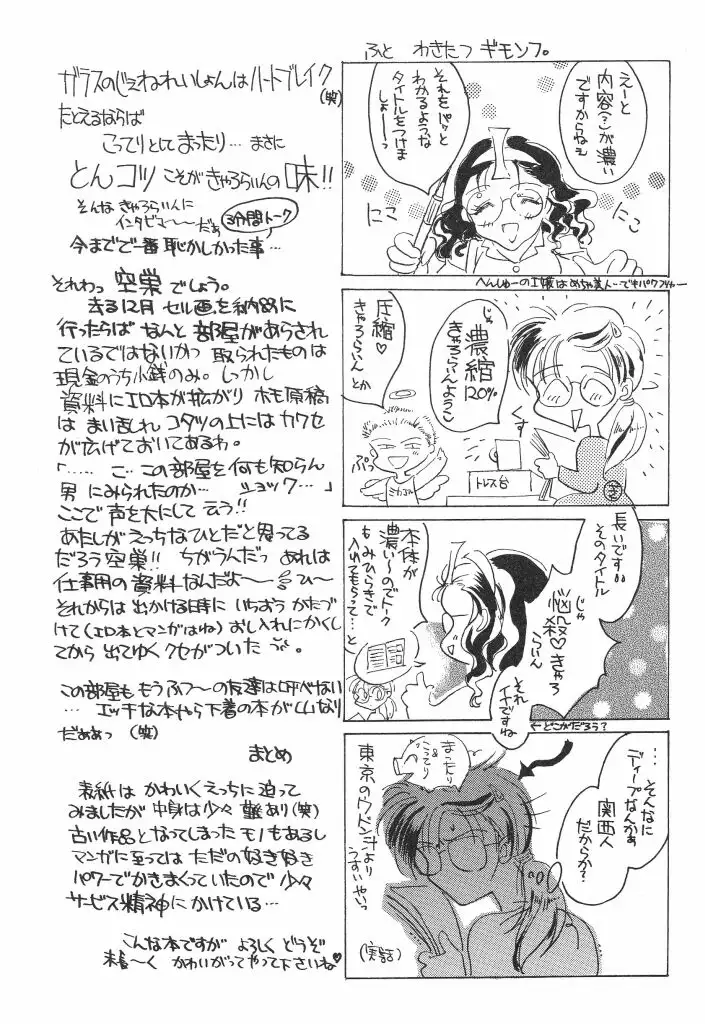 ガラスのじぇねれいしょんはハートブレイク
(笑)
たとえるならば
こってりとしてまったり… まさに
とんコツ こそがきゃろらいんの味!!
そんな きゃろらいんに
インタビュ〜〜だぁ
3分間トーク
今までで一番恥かしかった事…
それわっ 空巣 でしょう。
去る12月 セル画を納品に
行ったらば なんと 部屋があらされ
ているではないかっ 取られたものは
現金のうち小銭のみ。しっかし
資料にエロ本が拡がり ホモ原稿
は まい乱しれ コタツの上にはカワセ
が広げておいてあるわ。
「…… こ、この部屋を何も知らん
男 にみられたのか… ショック… 」
ここで 声を大にして 云う!!
あたしがえっちなひとだと思ってる
だろう空巣!! ちがうんだっ あれは
仕事用の資料なんだよ〜〜 ひ〜
それからは 出かける時に いちおう かたづ
けて(エロ本とマンガはね)おし入れにかくし
てから 出てゆく クセがついた
この部屋も もうふつ〜の友達は呼べない
… エッチな本やら下着の本がてんいなり
だぁぁっ (笑)
まとめ
表紙は かわいくえっちに迫って
みましたが 中身は少々 難あり(笑)
古い作品となってしまった モノもあるし
マンガに至っては ただの好き好き
パワーでかきまくっていたので 少々
サービス精神にかけている…
こんな本ですが よろしく どうぞ
末長〜く かわいがってやって下さいね♥
ふと わきたつ ギモンフ。
えーと
内容(?)が濃い
ですからねぇ
それをパッと
わかるような
タイトルをつけま
しょーっ
にこ
にこ
へんしゅーのI嬢はめちゃ美人ーでもパワフルー
じゃ
濃縮
120%
きゃろらいんようこ
圧縮♡
きゃろらいん
とか
くす
ぷっ
トレス台
長いです。
そのタイトル
じゃ
悩殺♡きゃろ
らいん
それ
イイですね
本体が
濃い〜のでトーク
もみひらきで
入れてもらって…と
←どこがだろう?
…そんなに
ディープなんかぁ
関西人
だからか?
まったり
&
こってり
東京のウドン汁より
うすいやいっ
(実話)